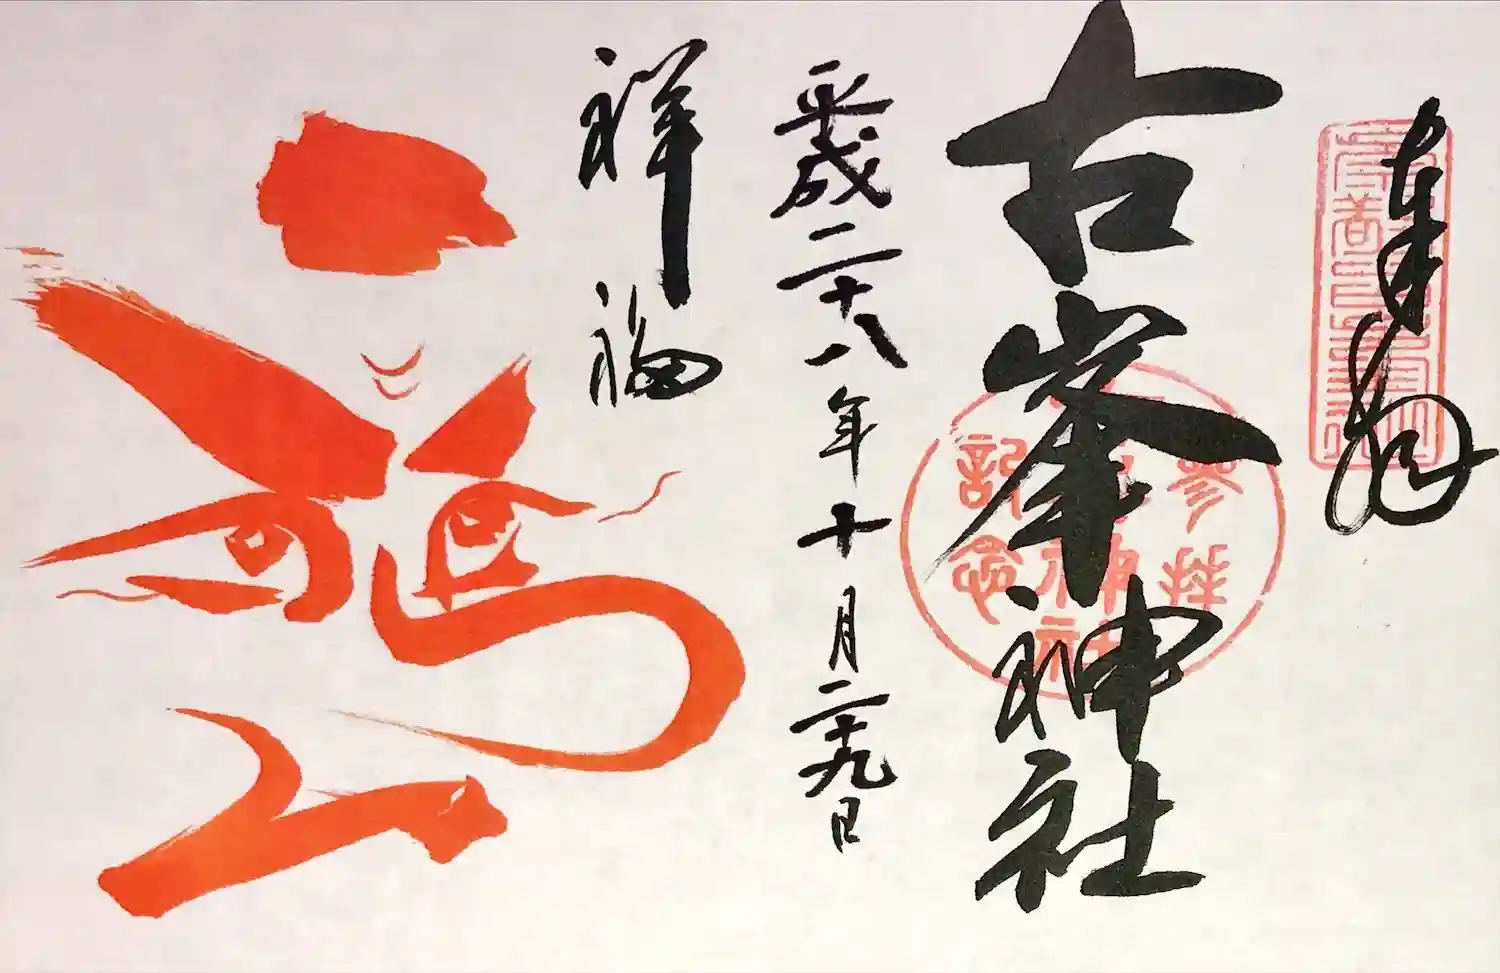 奉拝
古峯神社
参拝
古峯神社
記念
平成二十八年十月二十九日
祥福